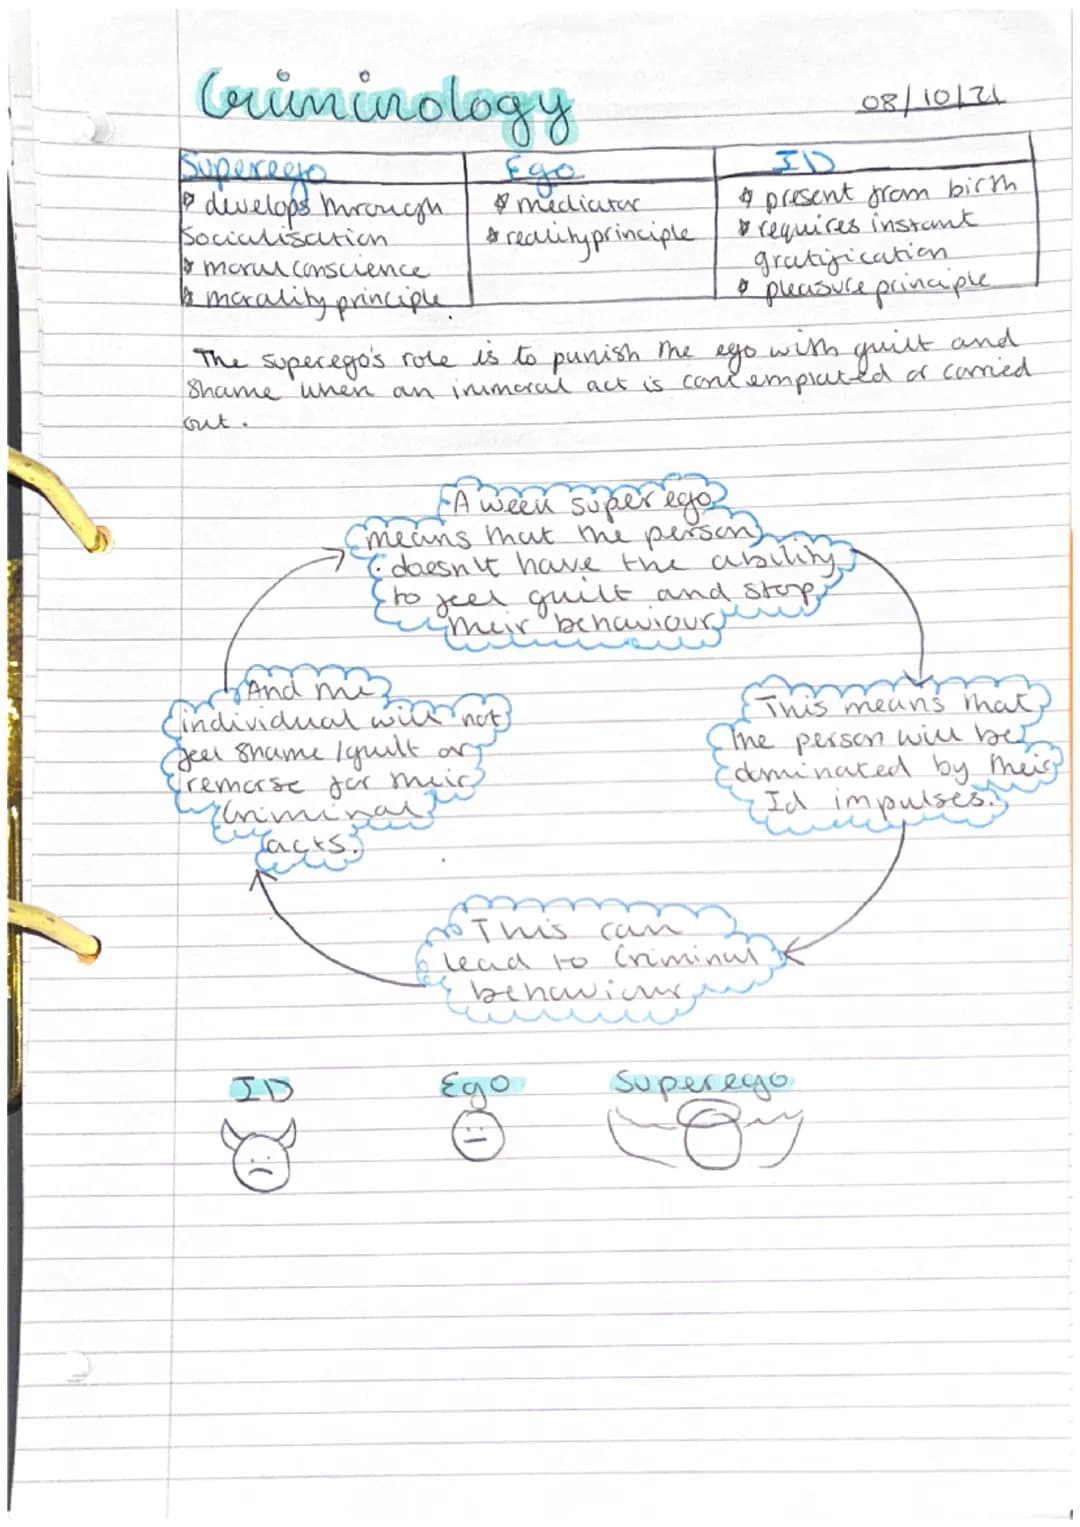 Criminology
08/10/21
Superego
Ego
ID
develops through
Socialisation
moral conscience
morality principle.
mediator
reality principle
present from birth
requires instant
gratification
pleasure principle
The superego's role is to punish the ego with guilt and
shame when an immoral act is contemplated or carried
out.
A week super ego
means that the person
doesn't have the ability
to feel guilt and stop
their behaviour
This means that
the person will be
dominated by their
Id impulses.
This can
lead to Criminal
behaviour
And the
individual will not
feel shame/guilt or
remorse for their
Criminal
acts.
ID
Ego
Superego